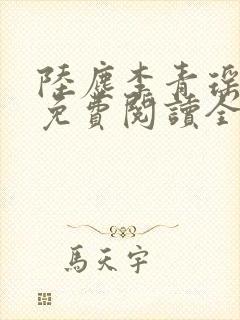 陸塵李青瑤
免費閱讀全
馬天宇